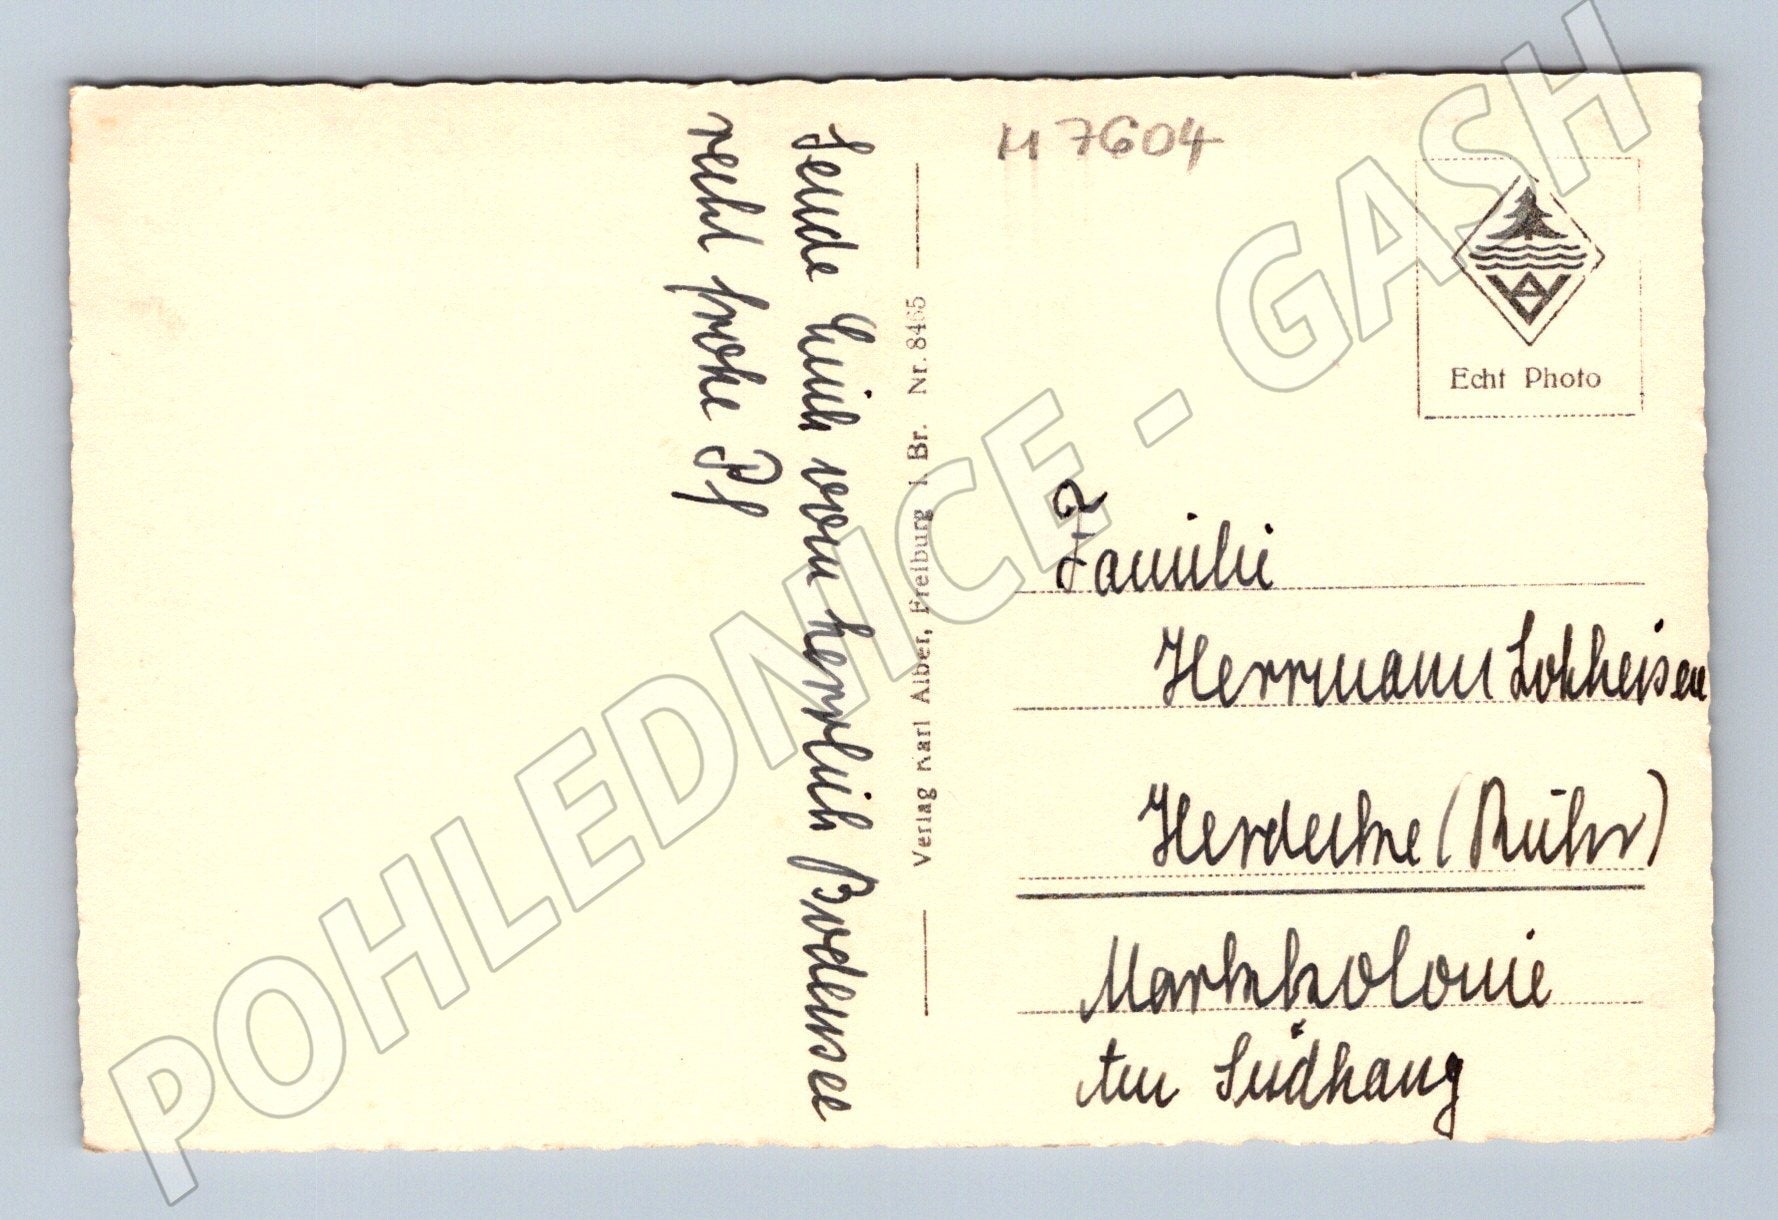 Sende Euch vom herrlich Bodensee
recht frohe Pf
Verlag Karl Alber, Freiburg i. Br. Nr. 8465
H 7604
Echt Photo
Familie
Herrmann Lokheisen
Herdecke (Ruhr)
Markkolonie
Am Südhang
POHLEDNICE - GASH